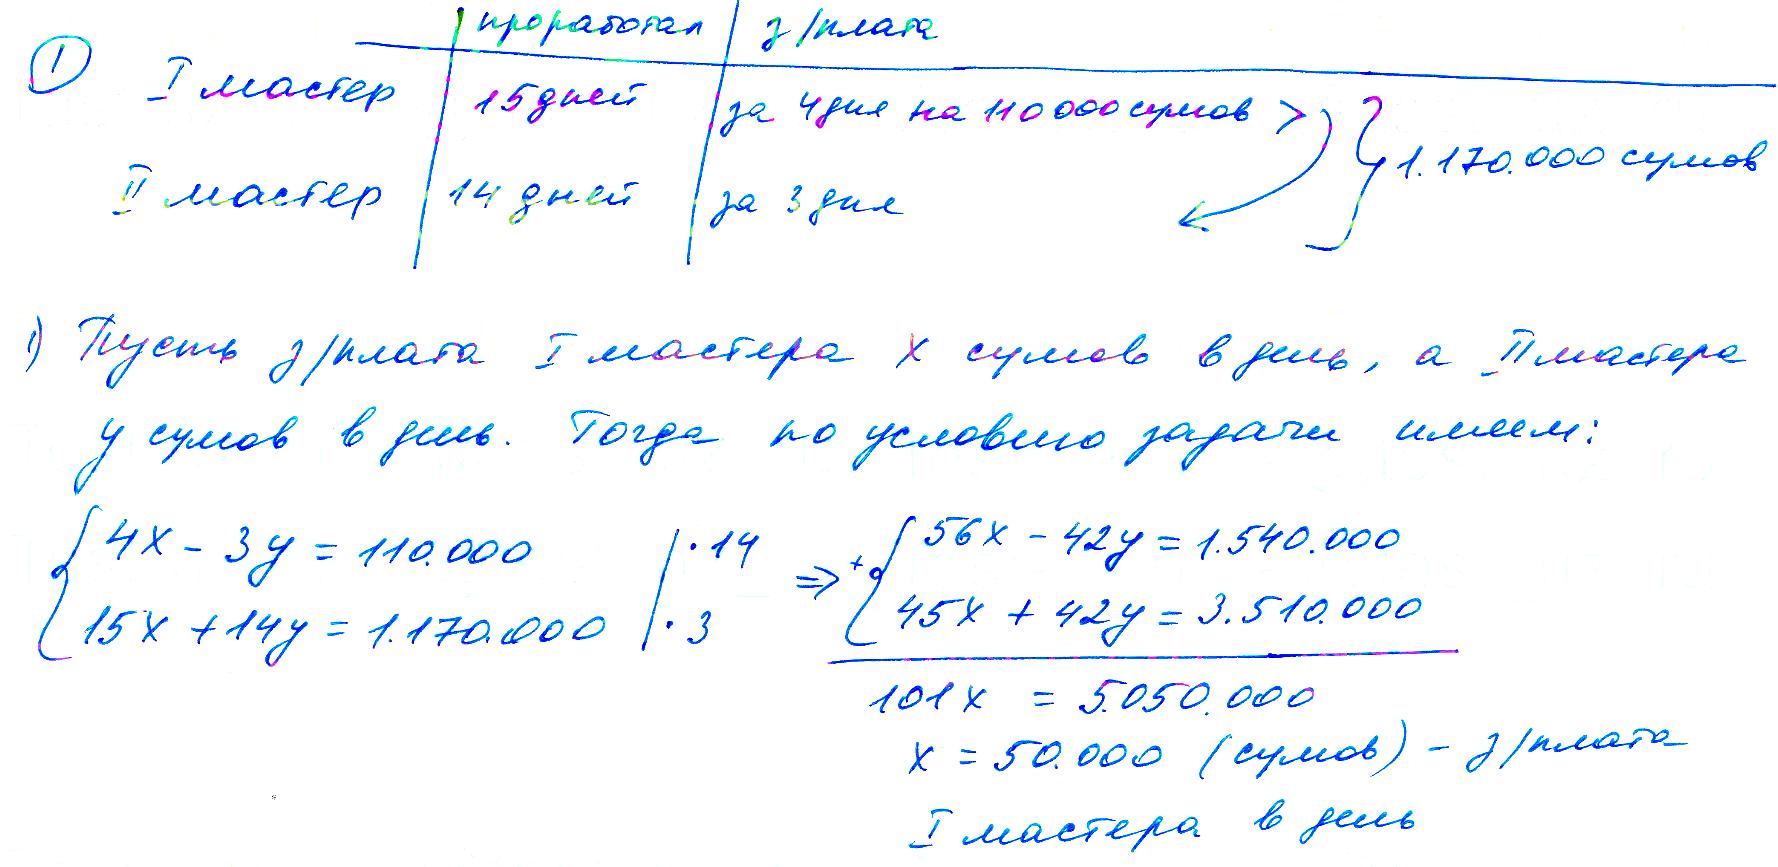 проработал з/плата
① I мастер 15 дней за 4 дня на 110 000 сумов > } 1.170.000 сумов
II мастер 14 дней за 3 дня
1) Пусть з/плата I мастера x сумов в день, а II мастера
y сумов в день. Тогда по условию задачи имеем:
{ 4x - 3y = 110.000 | · 14 ⇒ + { 56x - 42y = 1.540.000
15x + 14y = 1.170.000 | · 3 45x + 42y = 3.510.000
101x = 5.050.000
x = 50.000 (сумов) - з/плата
I мастера в день